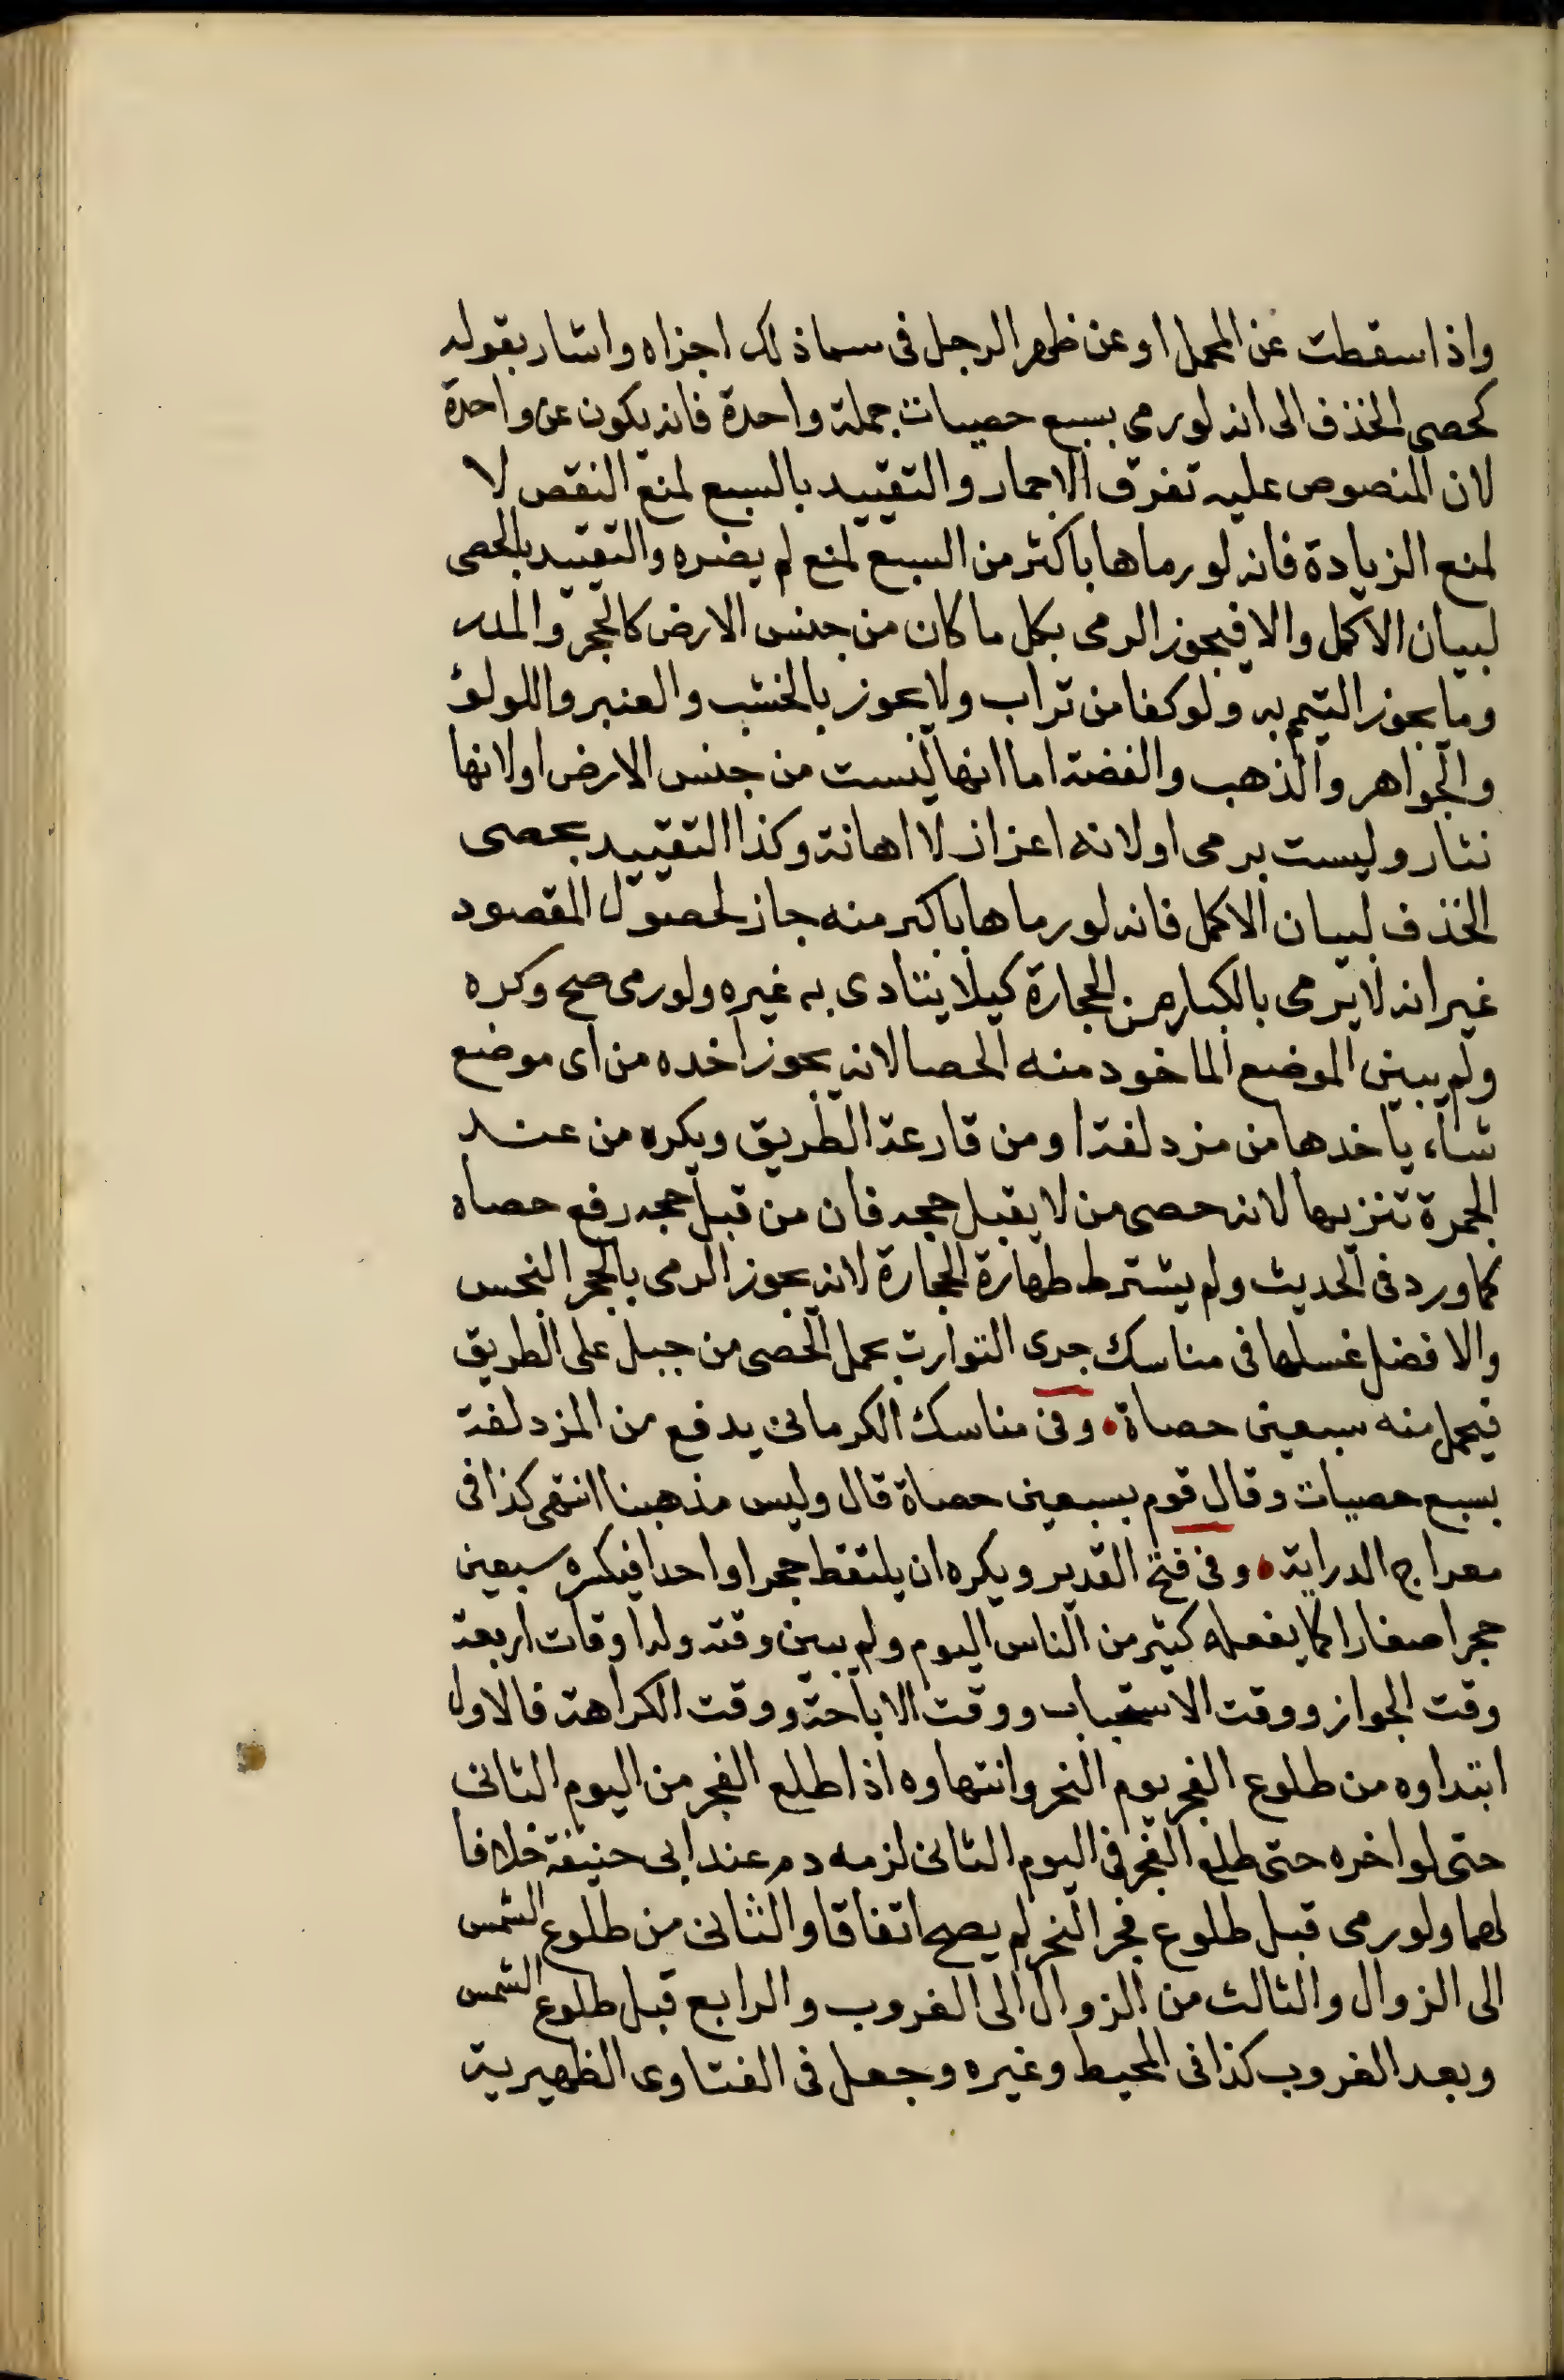 واذا سقطت عن المحمل او عن ظهر الرجل فى سماذلك اجزاه واشار بقوله
كحصى الخذف الى انه لو رمى بسبع حصيات جملة واحدة فانه يكون عن واحدة
لان المنصوص عليه تفرق الاحمار والتقييد بالسبع لمنع النقص لا
لمنع الزيادة فانه لو رماها باكثر من السبع لمنع لم يضره والتقييد بالحصى
لبيان الاكمل والا فيجوز الرمى بكل ما كان من جنس الارض كالحجر والمدر
وما يجوز التيمم به ولو كفا من تراب ولا يجوز بالخشب والعنبر واللولؤ
والجواهر والذهب والفضة اما انها ليست من جنس الارض او لانها
نثار وليست برمى او لانه اعزاز لا اهانة وكذا التقييد بحصى
الخذف لبيان الاكمل فانه لو رماها باكبر منه جاز لحصول المقصود
غير انه لا يرمى بالكبار من الحجارة كيلا يتادى به غيره ولو رمى صح وكره
ولم يبين الموضع الماخود منه الحصا لانه يجوز اخده من اى موضع
شاء ياخدها من مزدلفة او من قارعة الطريق ويكره من عند
الجمرة تنزيها لانه حصى من لا يقبل حجه فان من قبل حجه رفع حصاه
كما ورد فى الحديث ولم يشترط طهارة الحجارة لانه يجوز الرمى بالحجر النجس
والافضل غسلها فى مناسك جرى التوارث بحمل الحصى من جبل على الطريق
فيحمل منه سبعين حصاة وفى مناسك الكرمانى يدفع من المزدلفة
بسبع حصيات وقال قوم بسبعين حصاة قال وليس مذهبنا انتهى كذا فى
معراج الدراية وفى فتح القدير ويكره ان يلتقط حجرا واحدا فيكسره سبعين
حجرا صغارا كما يفعله كثير من الناس اليوم ولم يبين وقته وله اوقات اربعة
وقت الجواز ووقت الاستحباب ووقت الاباحة ووقت الكراهة فالاول
ابتداوه من طلوع الفجر يوم النحر وانتهاوه اذا طلع الفجر من اليوم الثانى
حتى لو اخره حتى طلع الفجر فى اليوم الثانى لزمه دم عند ابى حنيفة خلافا
لهما ولو رمى قبل طلوع فجر النحر لم يصح اتفاقا والثانى من طلوع الشمس
الى الزوال والثالث من الزوال الى الغروب والرابع قبل طلوع الشمس
وبعد الغروب كذا فى المحيط وغيره وجعل فى الفتاوى الظهيرية